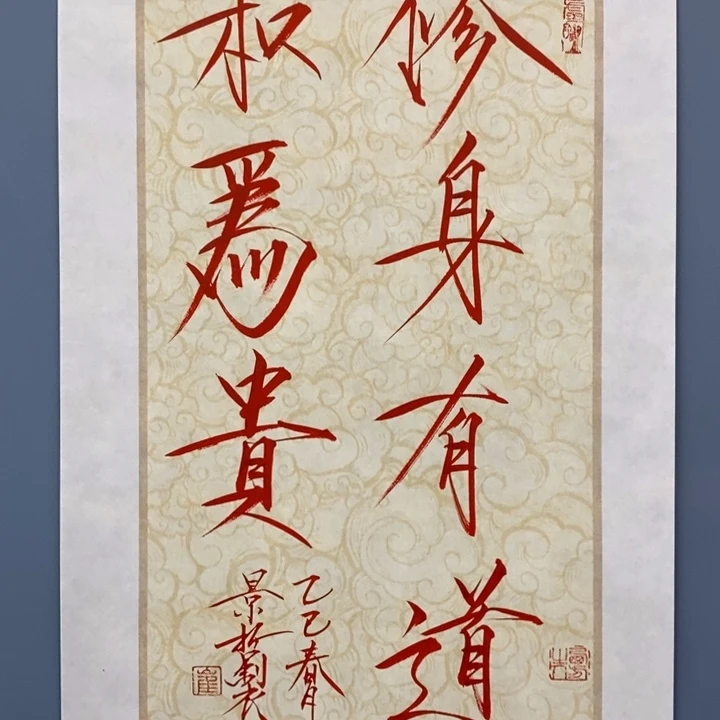 修身有道
和為貴
乙巳春月
景